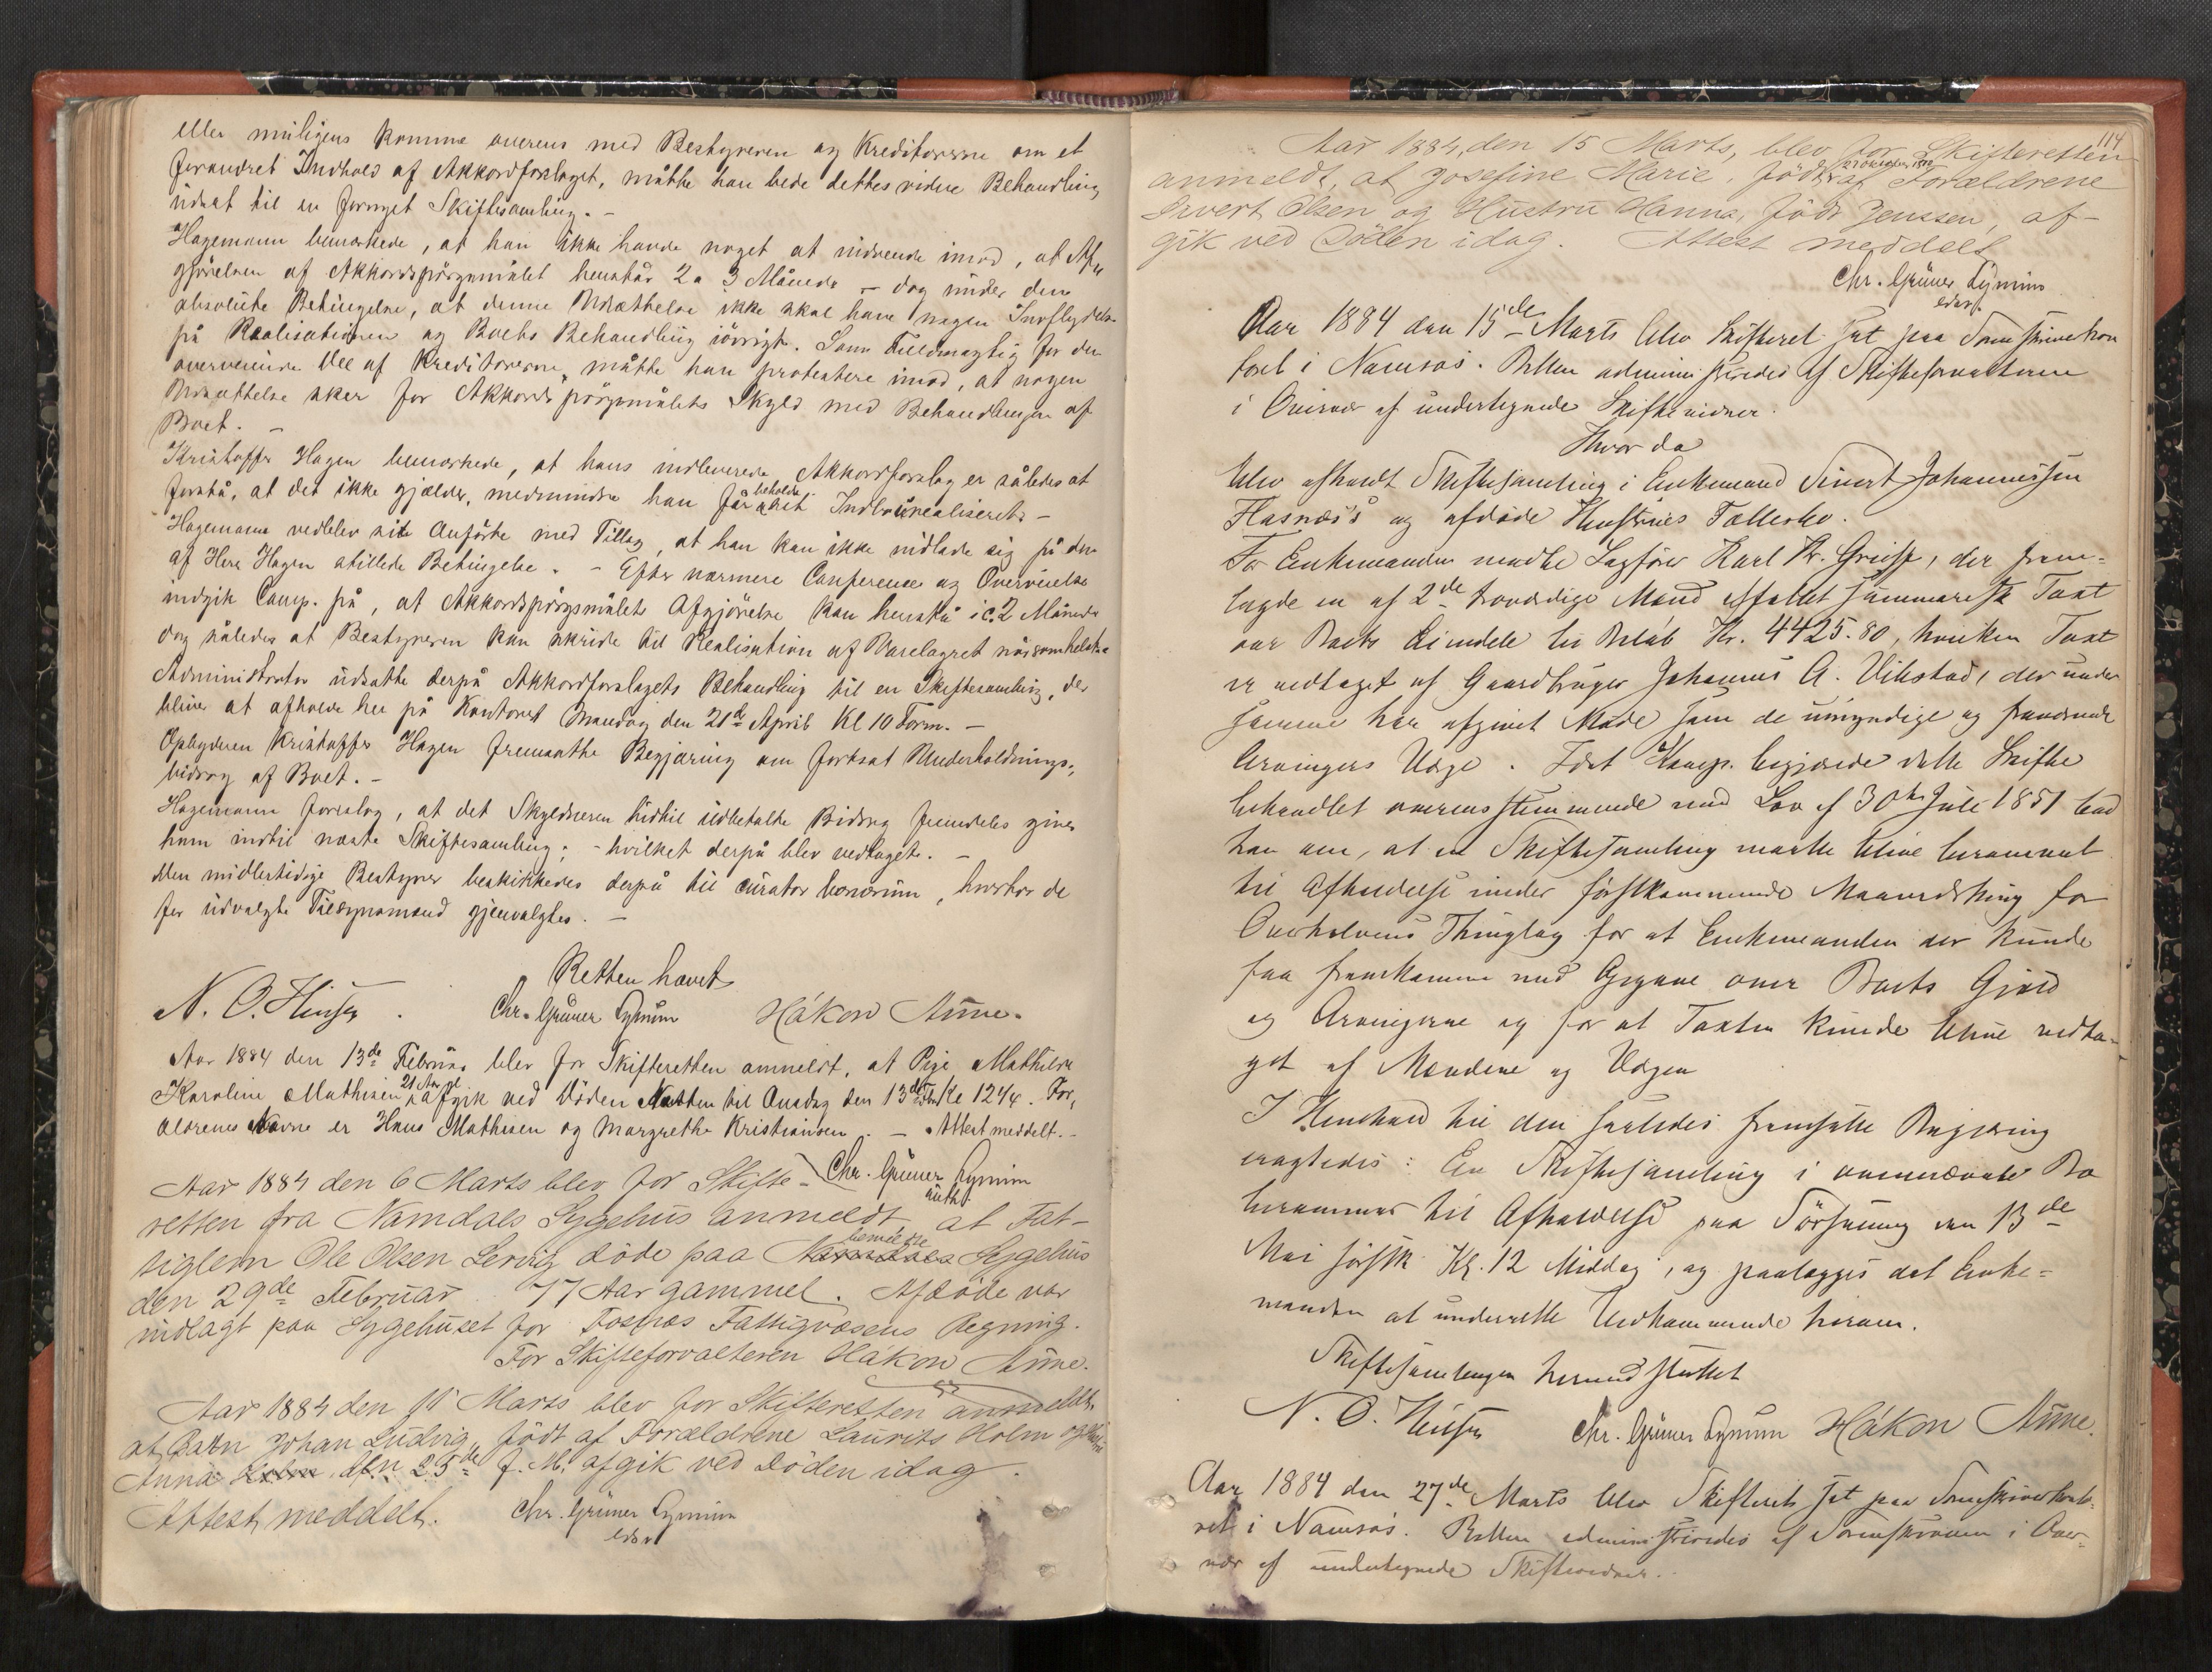 eller muligens komme overens med Bestyreren og Kreditorerne om et
forandret Indhold af Akkordforslaget, måtte han bede dettes videre Behandling
udsat til en fornyet Skiftesamling. -
Hagemann bemærkede, at han ikke havde noget at indvende imod, at Af-
gjørelsen af Akkordspørgsmålet henstår 2 a 3 Måneder - dog under den
absolute Betingelse, at denne Udsættelse ikke skal have nogen Indflydelse
på Realisationen og Boets Behandling iøvrigt. Som Fuldmægtig for den
overveiende Del af Kreditorerne måtte han protestere imod, at nogen
Udsættelse sker for Akkordspørgsmålets Skyld med Behandlingen af
Boet. -
Kristoffer Hagen bemærkede, at hans indleverede Akkordforslag er således at
forstå, at det ikke gjælder, medmindre han får beholde Indboet urealiseret. -
Hagemann vedblev sit Anførte med Tillæg, at han kan ikke indlade sig på den
af Herr Hagen stillede Betingelse. - Efter nærmere Conference og Overveielse
indgik Comp. på, at Akkordspørgsmålets Afgjørelse kan henstå i c. 2 Måneder
dog således at Bestyreren kan skride til Realisation af Varelagret nårsomhelst. -
Administrator udsatte derpå Akkordforslagets Behandling til en Skiftesamling, der
bliver at afholde her på Kontoret Mandag den 21de April Kl 10 Form. -
Opbyderen Kristoffer Hagen fremsatte Begjæring om fortsat Underholdnings-
bidrag af Boet. -
Hagemann foreslog, at det Skyldneren hidtil udbetalte Bidrag fremdeles gives
ham indtil næste Skiftesamling; - hvilket derpå blev vedtaget. -
Den midlertidige Bestyrer beskikkedes derpå til curator bonorum, hvorhos de
før udvalgte Tilsynsmænd gjenvalgtes. -
Retten hævet
N. O. Chr. Grüner Gynnin Håkon Aune.
Aar 1884 den 13de Februar blev for Skifteretten anmeldt, at Pige Mathilde
Karoline Mathisen 21 Aar gl afgik ved Døden Natten til Onsdag den 13de Kl 12¼. For-
ældrenes Navne er Hans Mathisen og Margrethe Kristiansen. - Attest meddelt. -
Chr. Grüner
Aar 1884 den 6 Marts blev for Skifte-
retten fra Namdals Sygehus anmeldt, at Fat-
tiglem Ole Olsen Lervig døde paa bemeldte Sygehus
den 29de Februar 77 Aar gammel. Afdøde var
indlagt paa Sygehuset for Fosnæs Fattigvæsens Regning.
For Skifteforvalteren Håkon Aune.
Aar 1884 den 11 Marts blev for Skifteretten anmeldt,
at Barn Johan Ludvig, født af Forældrene Laurits Holm og Hustru
Anna den 25de f. M. afgik ved Døden idag.
Attest meddelt. Chr. Grüner
114
Aar 1884, den 15 Marts, blev for Skifteretten
anmeldt, at Josefine Marie, født af Forældrene
Sivert Olsen og Hustru Hanna, født Jenssen, af-
gik ved Døden idag. Attest meddelt
Chr. Grüner
Aar 1884 den 15de Marts blev Skifteret sat paa Sorenskriverkon
toret i Namsos. Retten administreredes af Skifteforvalteren
i Overvær af undertegnede Skiftevidner.
Hvor da
blev afholdt Skiftesamling i Enkemand Sivert Johannessen
Flasnæs's og afdøde Hustrues Fællesbo.
For Enkemanden mødte Sagfører Karl Kr. Greiff, der frem-
lagde en af 2de troværdige Mænd affattet summarisk Taxt
over Boets Eiendele til Beløb Kr. 4425.80, hvilken Taxt
er vedtaget af Gaardbruger Johannes A. Vibstad, der under
samme har afgivet Møde som de umyndige og fraværende
Arvingers Værge. Idet Komp. begjærede dette Skifte
behandlet overensstemmende med Lov af 30te Juli 1851 bad
han om, at en Skiftesamling maatte blive berammet
til Afholdelse under førstkommende Maanedsthing for
Overhalvens Thinglag for at Enkemanden der kunde
faa fremkomme med Opgave over Boets Gjæld
og Arvingerne og for at Taxten kunde blive vedta-
get af Mændene og Værgen
I Henhold til den saaledes fremsatte Begjæring
eragtedes: En Skiftesamling i ovennævnte Bo
berammes til Afholdelse paa den 13de
Mai førstk Kl. 12 Middag, og paalægges det Enke-
manden at underrette Vedkommende herom.
Skiftesamlingen hermed sluttet
N. O. Chr. Grüner Gynnin Håkon Aune.
Aar 1884 den 27de Marts blev Skifteret sat paa Sorenskriverkonto-
ret i Namsos. Retten administreredes af Sorenskriveren i Over-
vær af undertegnede Skiftevidner.